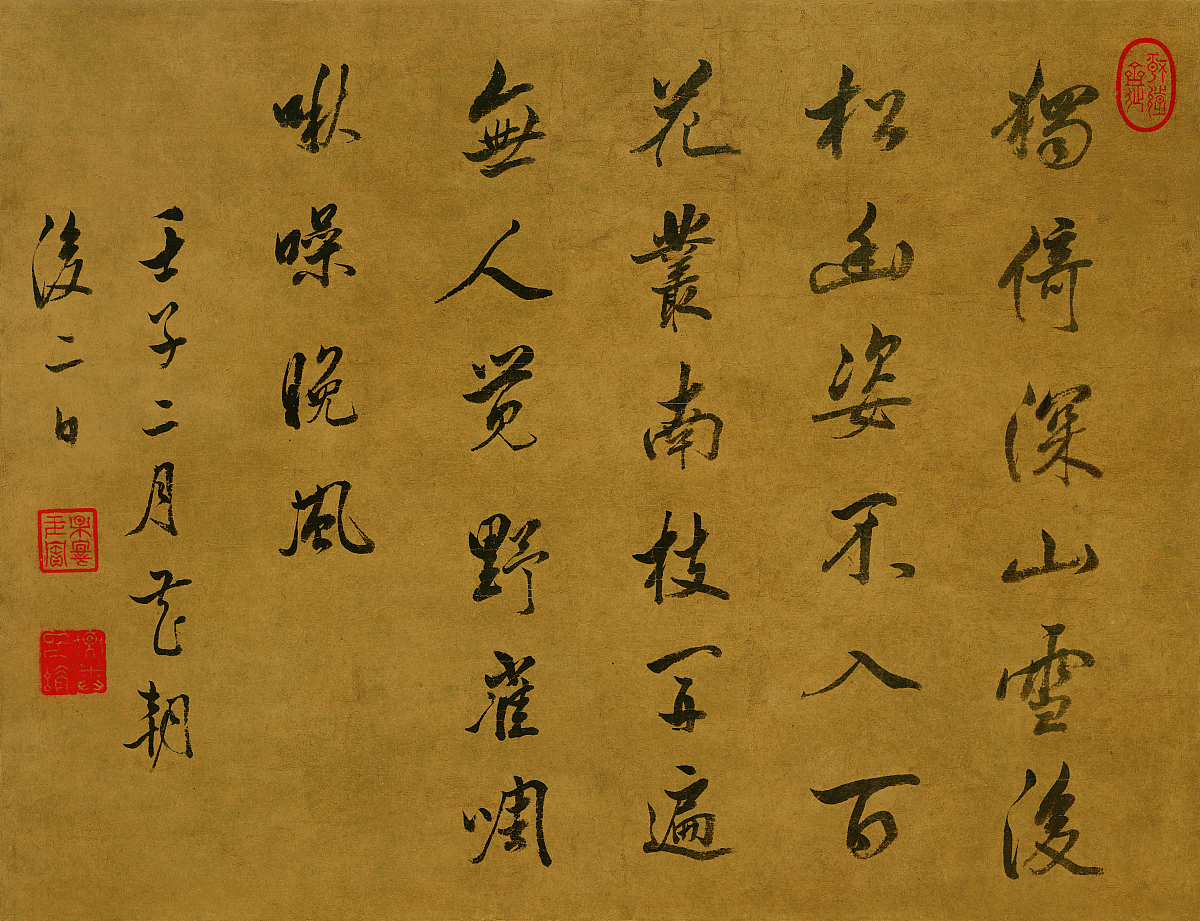 獨倚深山雪後
松幽姿不入百
花叢南枝開遍
無人覺野雀啁
啾噪晚風
壬子二月花朝
後二日